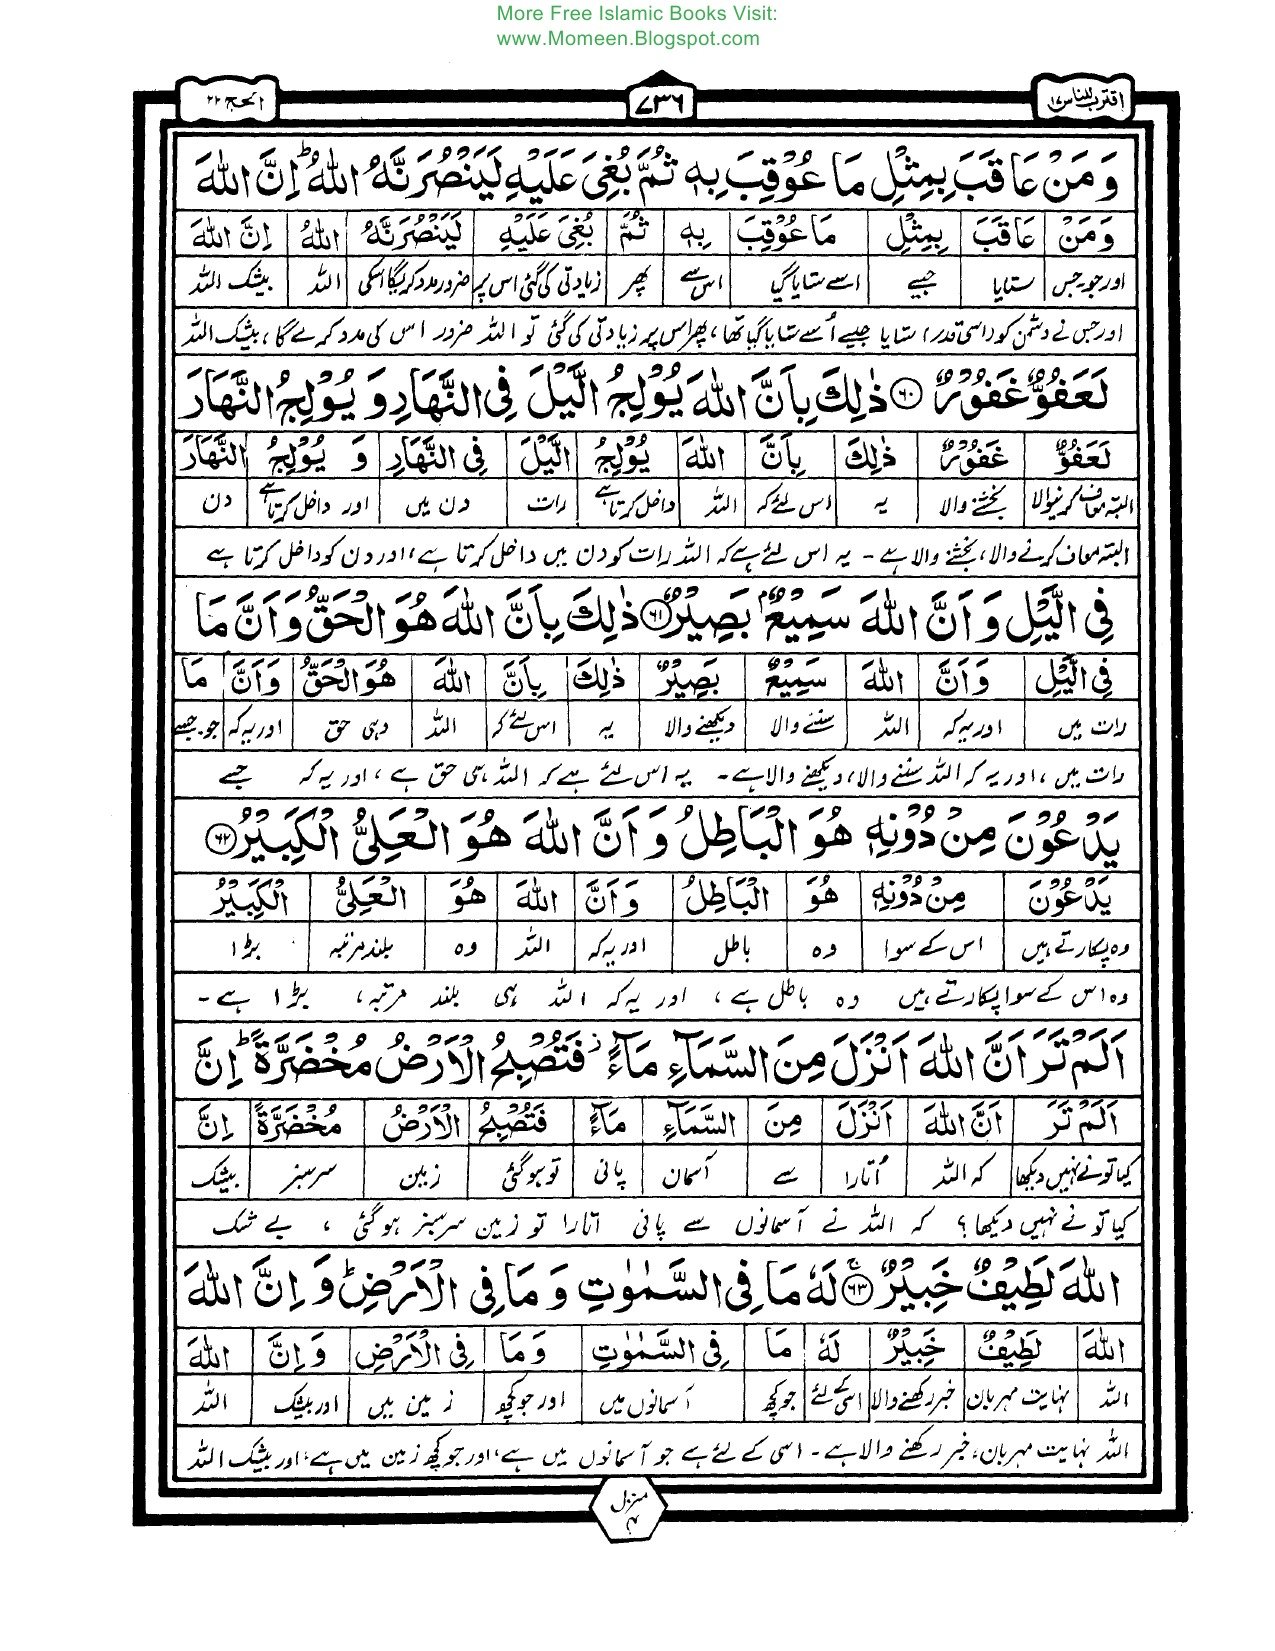 More Free Islamic Books Visit:
www.Momeen.Blogspot.com
اقترب للناس ۱۷
۷۳۶
الحج ۲۲
وَمَنْ عَاقَبَ بِمِثْلِ مَا عُوْقِبَ بِهٖ ثُمَّ بُغِیَ عَلَیْهِ لَیَنْصُرَنَّهُ اللّٰهُ ؕ اِنَّ اللّٰهَ
وَمَنْ عَاقَبَ بِمِثْلِ مَا عُوْقِبَ بِهٖ ثُمَّ بُغِیَ عَلَیْهِ لَیَنْصُرَنَّهُ اللّٰهُ اِنَّ اللّٰهَ
اور جو۔جس ستایا جیسے اسے ستایا گیا اس سے پھر زیادتی کی گئی اس پر ضرور مدد کریگا اسکی اللہ بیشک اللہ
اور جس نے دشمن کو (اسی قدر) ستایا جیسے اُسے ستایا گیا تھا، پھر اس پر زیادتی کی گئی تو اللہ ضرور اس کی مدد کرے گا، بیشک اللہ
لَعَفُوٌّ غَفُوْرٌ ﴿۶۰﴾ ذٰلِكَ بِاَنَّ اللّٰهَ یُوْلِجُ الَّیْلَ فِی النَّهَارِ وَ یُوْلِجُ النَّهَارَ
لَعَفُوٌّ غَفُوْرٌ ذٰلِكَ بِاَنَّ اللّٰهَ یُوْلِجُ الَّیْلَ فِی النَّهَارِ وَ یُوْلِجُ النَّهَارَ
البتہ معاف کرنیوالا بخشنے والا یہ اس لئے کہ اللہ داخل کرتا ہے رات دن میں اور داخل کرتا ہے دن
البتہ معاف کرنے والا، بخشنے والا ہے ۔ یہ اس لئے ہے کہ اللہ رات کو دن میں داخل کرتا ہے، اور دن کو داخل کرتا ہے
فِی الَّیْلِ وَ اَنَّ اللّٰهَ سَمِیْعٌۢ بَصِیْرٌ ﴿۶۱﴾ ذٰلِكَ بِاَنَّ اللّٰهَ هُوَ الْحَقُّ وَ اَنَّ مَا
فِی الَّیْلِ وَ اَنَّ اللّٰهَ سَمِیْعٌ بَصِیْرٌ ذٰلِكَ بِاَنَّ اللّٰهَ هُوَ الْحَقُّ وَ اَنَّ مَا
رات میں اور یہ کہ اللہ سننے والا دیکھنے والا یہ اس لئے کہ اللہ وہی حق اور یہ کہ جو۔جسے
رات میں، اور یہ کہ اللہ سننے والا، دیکھنے والا ہے ۔ یہ اس لئے ہے کہ اللہ ہی حق ہے، اور یہ کہ جسے
یَدْعُوْنَ مِنْ دُوْنِهٖ هُوَ الْبَاطِلُ وَ اَنَّ اللّٰهَ هُوَ الْعَلِیُّ الْكَبِیْرُ ﴿۶۲﴾
یَدْعُوْنَ مِنْ دُوْنِهٖ هُوَ الْبَاطِلُ وَ اَنَّ اللّٰهَ هُوَ الْعَلِیُّ الْكَبِیْرُ
وہ پکارتے ہیں اس کے سوا وہ باطل اور یہ کہ اللہ وہ بلند مرتبہ بڑا
وہ اس کے سوا پکارتے ہیں وہ باطل ہے، اور یہ کہ اللہ ہی بلند مرتبہ، بڑا ہے ۔
اَلَمْ تَرَ اَنَّ اللّٰهَ اَنْزَلَ مِنَ السَّمَآءِ مَآءً ؗ فَتُصْبِحُ الْاَرْضُ مُخْضَرَّةً ؕ اِنَّ
اَلَمْ تَرَ اَنَّ اللّٰهَ اَنْزَلَ مِنَ السَّمَآءِ مَآءً فَتُصْبِحُ الْاَرْضُ مُخْضَرَّةً اِنَّ
کیا تو نے نہیں دیکھا کہ اللہ اُتارا سے آسمان پانی تو ہو گئی زمین سرسبز بیشک
کیا تو نے نہیں دیکھا؟ کہ اللہ نے آسمانوں سے پانی اتارا تو زمین سرسبز ہو گئی، بے شک
اللّٰهَ لَطِیْفٌ خَبِیْرٌ ﴿۶۳﴾ لَهٗ مَا فِی السَّمٰوٰتِ وَ مَا فِی الْاَرْضِ ؕ وَ اِنَّ اللّٰهَ
اللّٰهَ لَطِیْفٌ خَبِیْرٌ لَهٗ مَا فِی السَّمٰوٰتِ وَمَا فِی الْاَرْضِ وَ اِنَّ اللّٰهَ
اللہ نہایت مہربان خبر رکھنے والا اسی کے لئے جو کچھ آسمانوں میں اور جو کچھ زمین میں اور بیشک اللہ
اللہ نہایت مہربان، خبر رکھنے والا ہے ۔ اسی کے لئے ہے جو آسمانوں میں ہے، اور جو کچھ زمین میں ہے، اور بیشک اللہ
منزل
۴